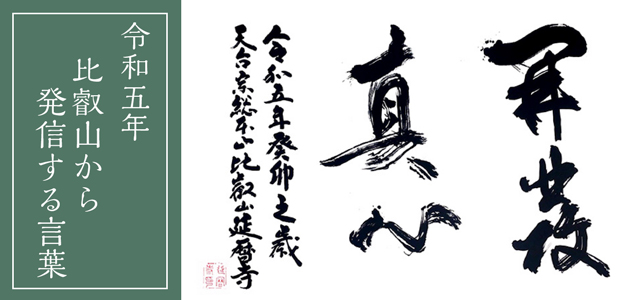 令和五年
比叡山から
発信する言葉
開發
真心
令和五年癸卯之歳
天台宗総本山比叡山延暦寺